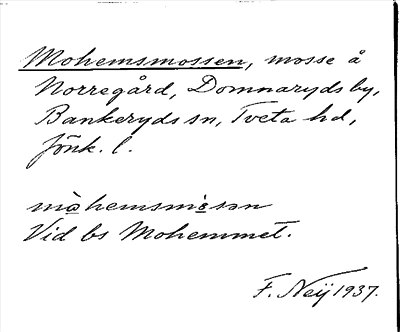 Mohemsmossen, mosse å
Norregård, Domnaryds by,
Bankeryds sn, Tveta hd,
Jönk. l.
Vid bs Mohemmet.
F. Neij 1937.